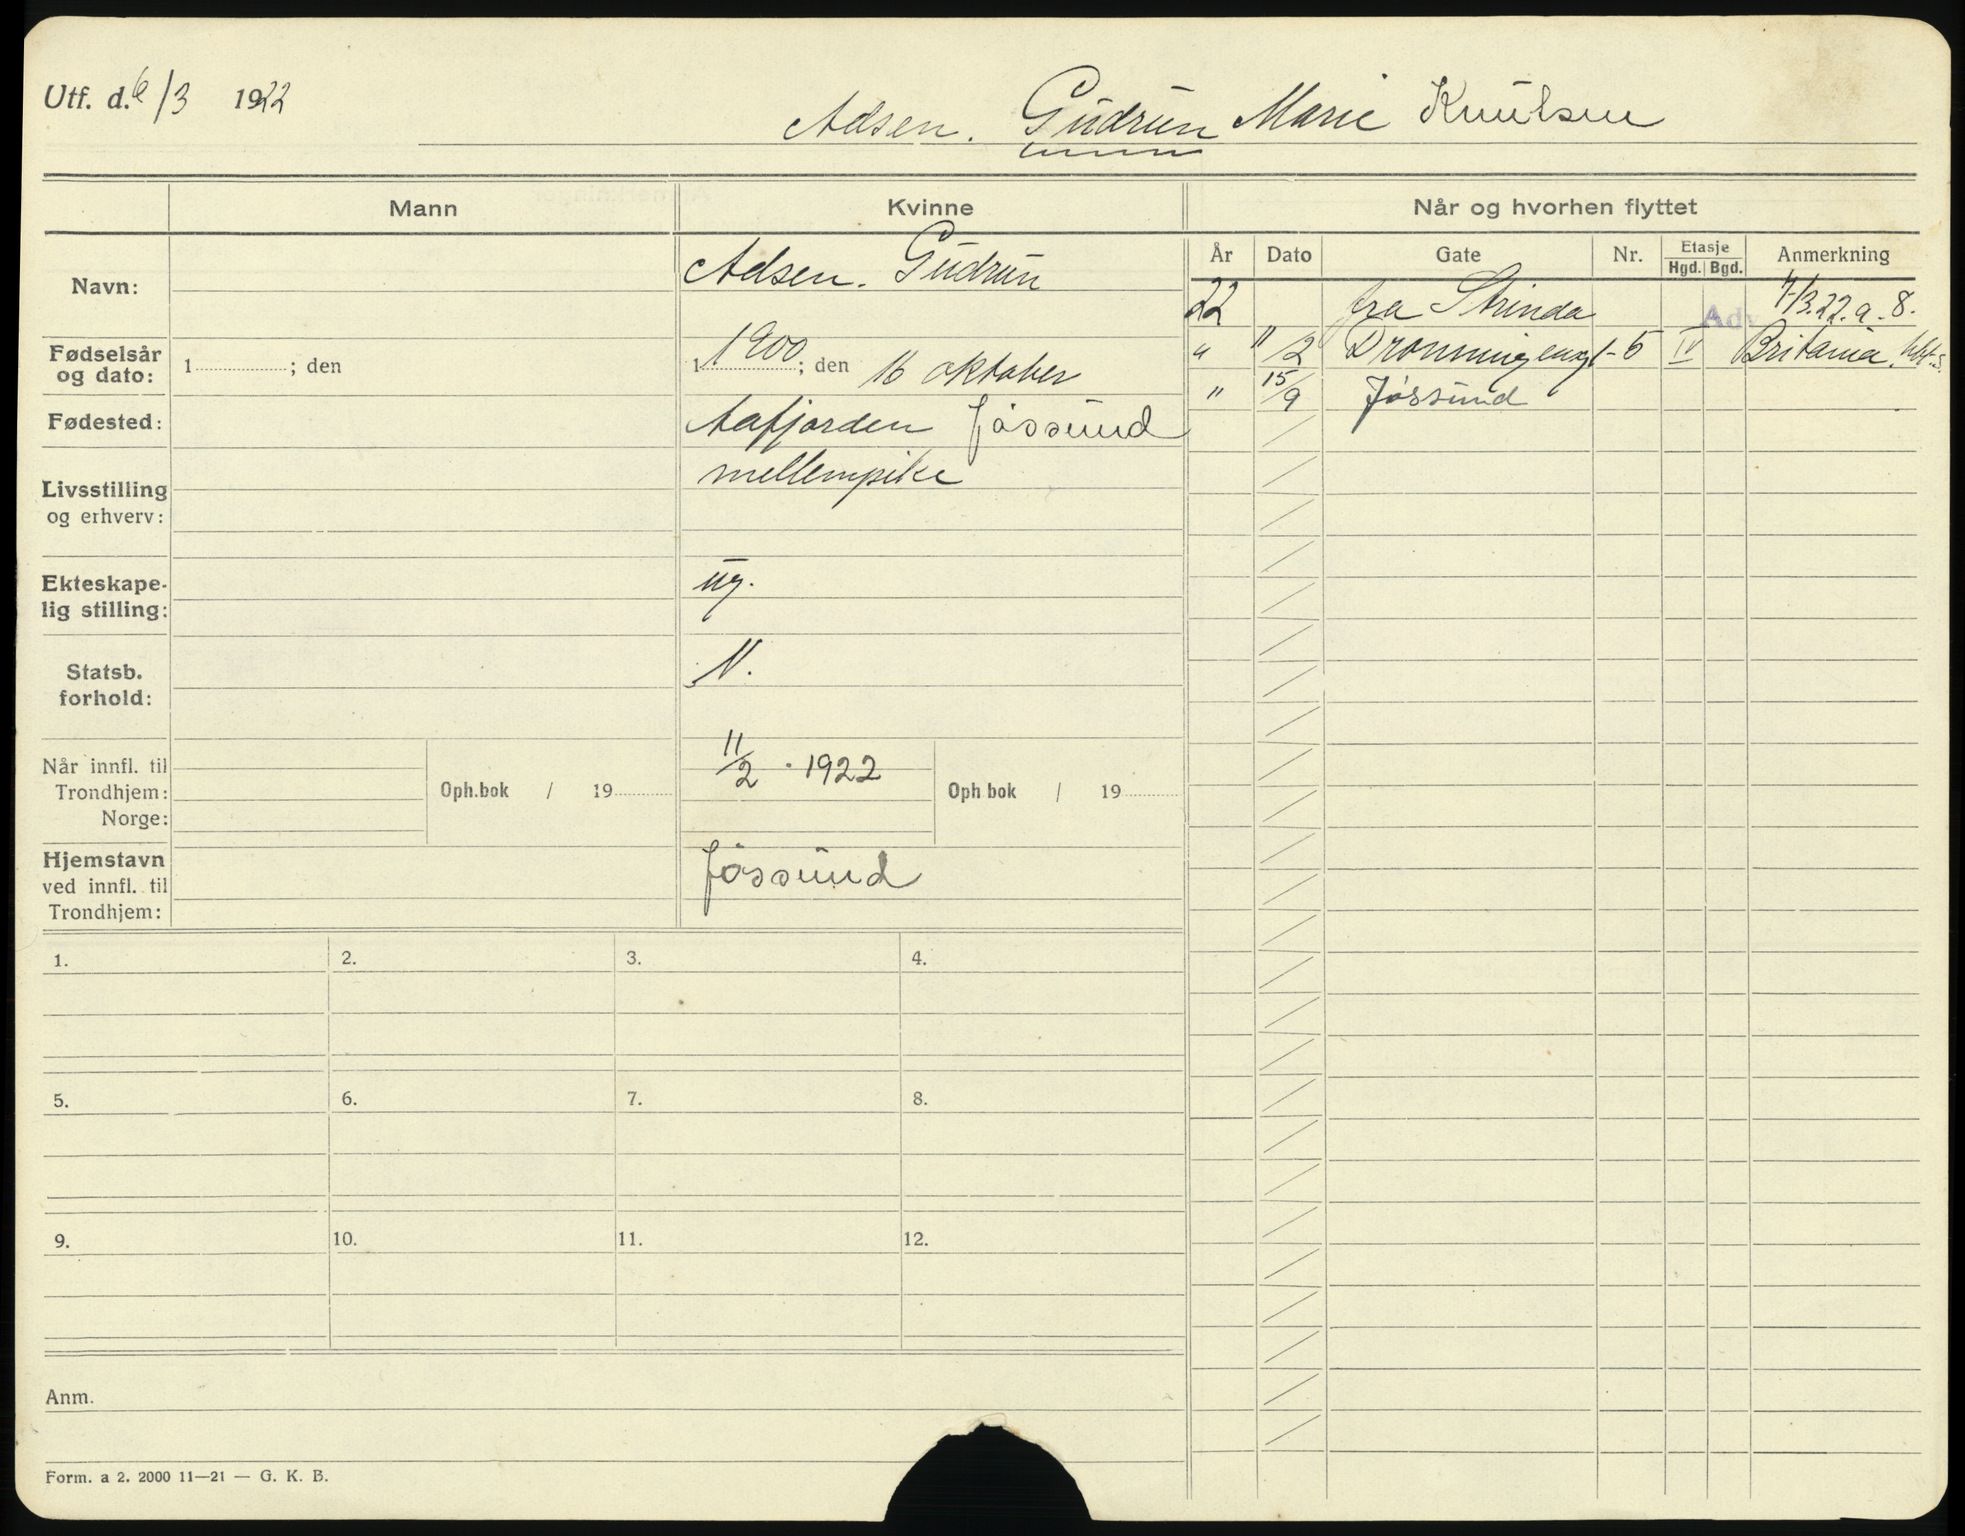 Utf. d. 6/3 1922
Adsen. Gudrun Marie Knutsen
Mann
Kvinne
Når og hvorhen flyttet
Navn:
Adsen. Gudrun
År Dato Gate Nr. Etasje Hgd. Bgd. Anmerkning
22 fra Strinda 4/3.22. a. 8.
Fødselsår og dato:
1 ; den
1 1900 ; den 16 oktober
" 11/2 Dronningensg 1-5 IV Britania
" 15/9 Jøssund
Fødested:
Aafjorden Jøssund
Livsstilling og erhverv:
mellempike
Ekteskape-
lig stilling:
ug.
Statsb.
forhold:
N.
Når innfl. til
Trondhjem:
Norge:
Oph.bok / 19
11/2 · 1922
Oph bok / 19
Hjemstavn
ved innfl. til
Trondhjem:
Jøssund
1. 2. 3. 4.
5. 6. 7. 8.
9. 10. 11. 12.
Anm.
Form. a 2. 2000 11—21 — G. K. B.